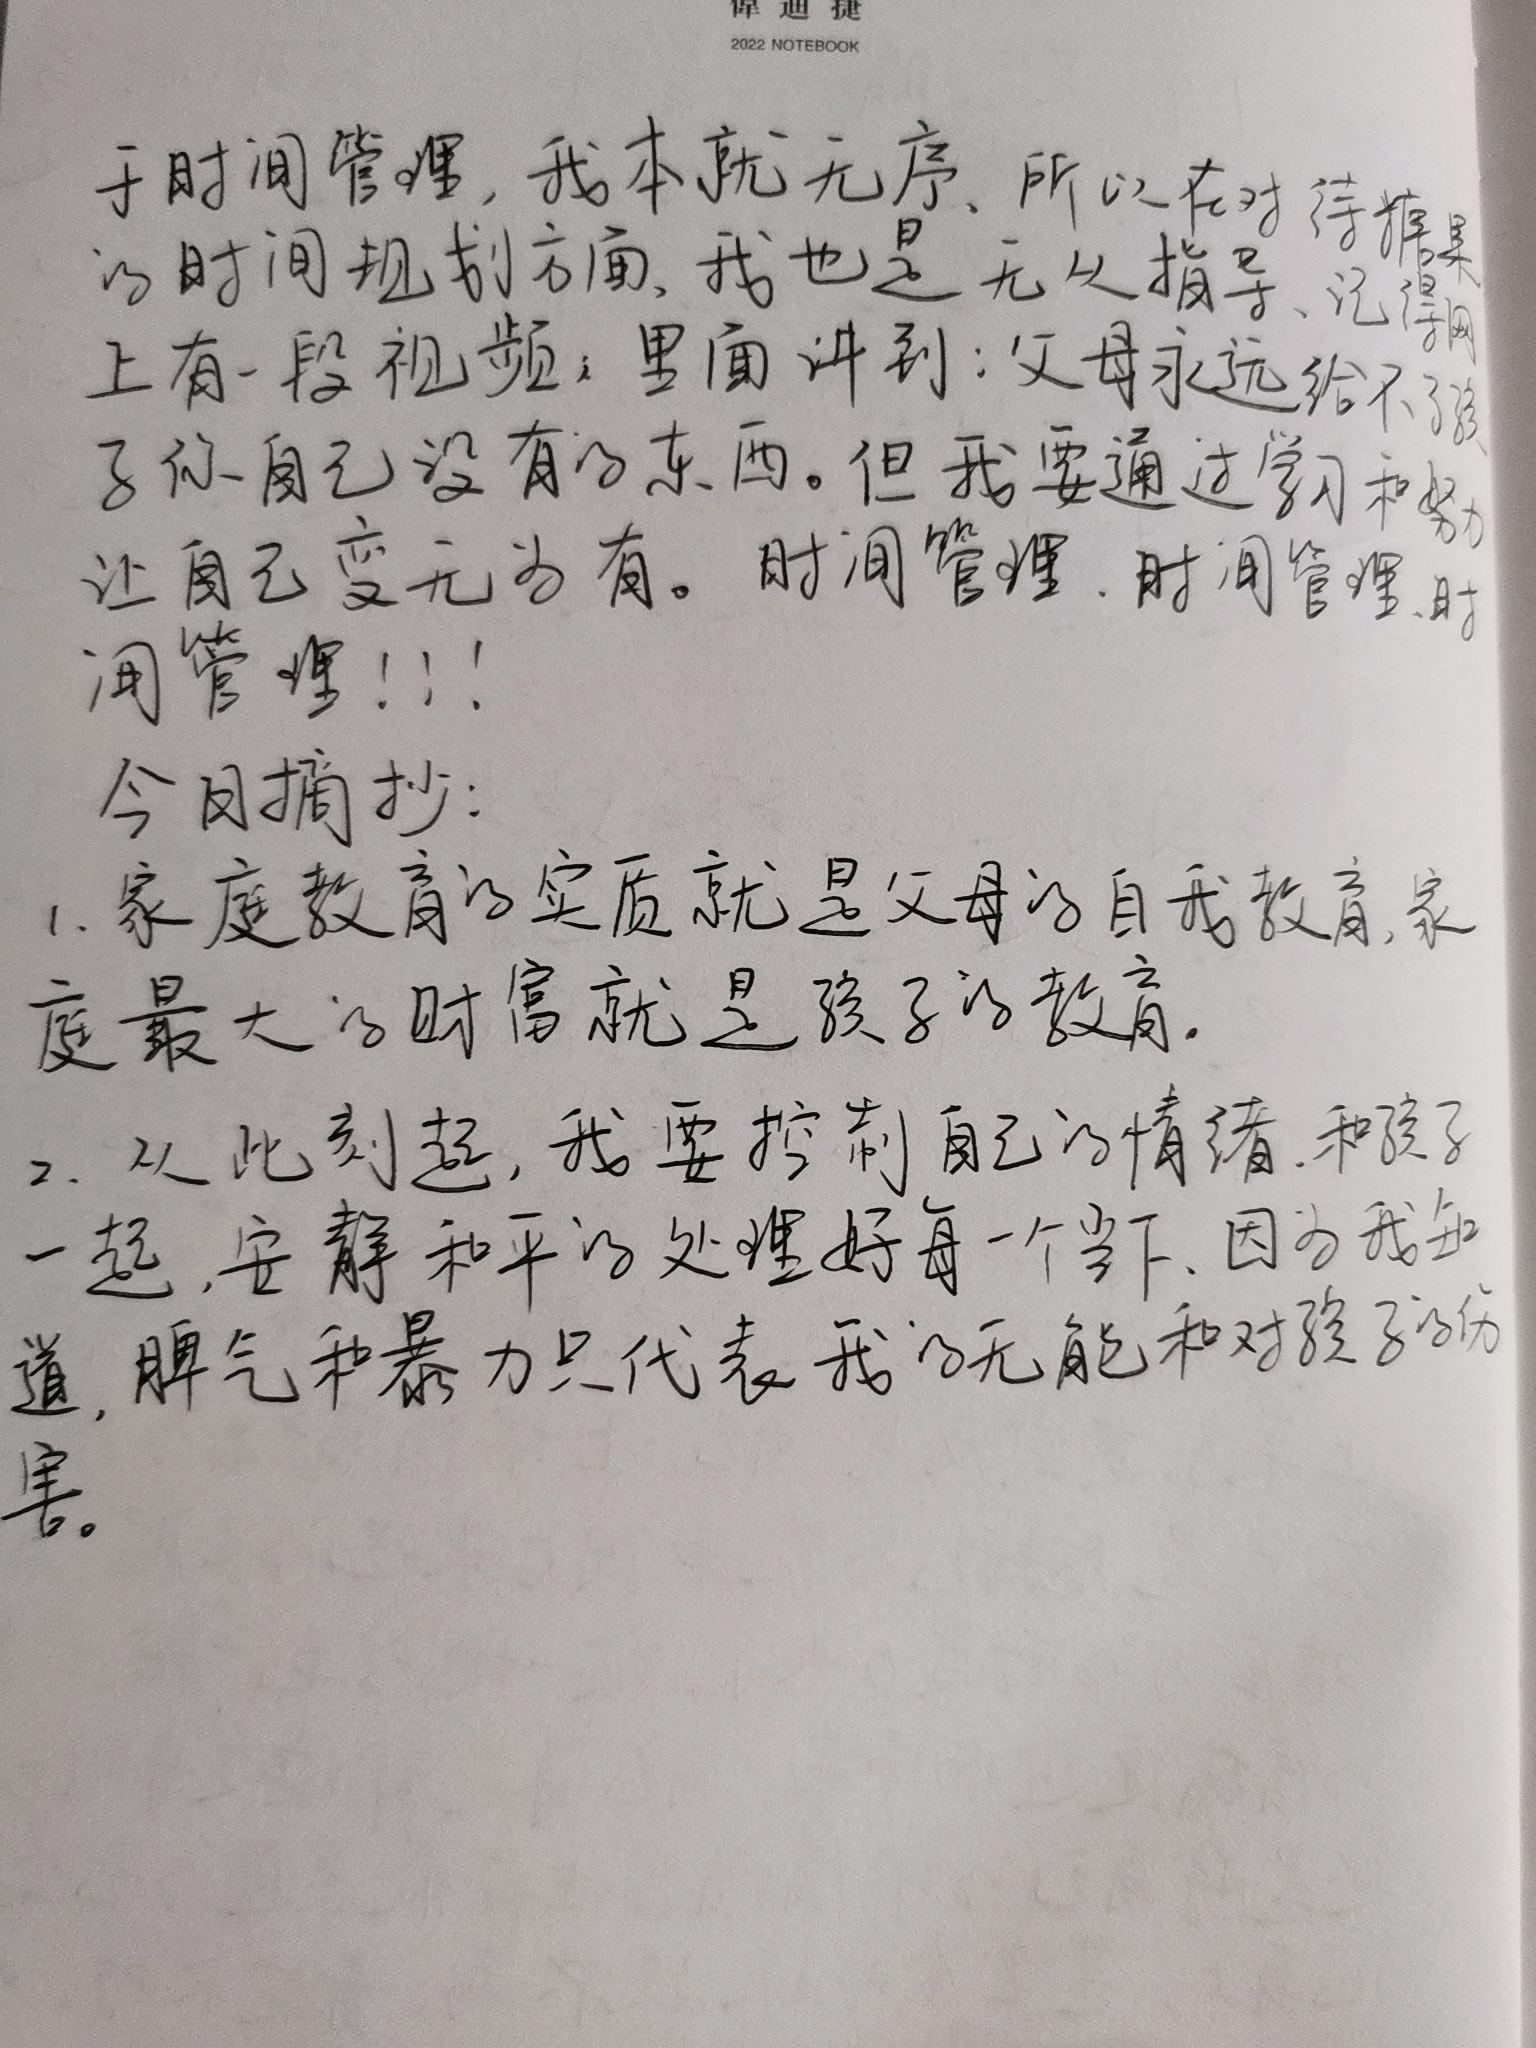 偉迪捷
2022 NOTEBOOK
于时间管理，我本就无序、所以在对待糖果
的时间规划方面、我也是无从指导、记得网
上有一段视频；里面讲到：父母永远给不了孩
子你自己没有的东西。但我要通过学习和努力
让自己变无为有。时间管理、时间管理、时
间管理！！！
今日摘抄：
1. 家庭教育的实质就是父母的自我教育、家
庭最大的财富就是孩子的教育.
2. 从此刻起，我要控制自己的情绪、和孩子
一起，安静和平的处理好每一个当下、因为我知
道，脾气和暴力只代表我的无能和对孩子的伤
害。